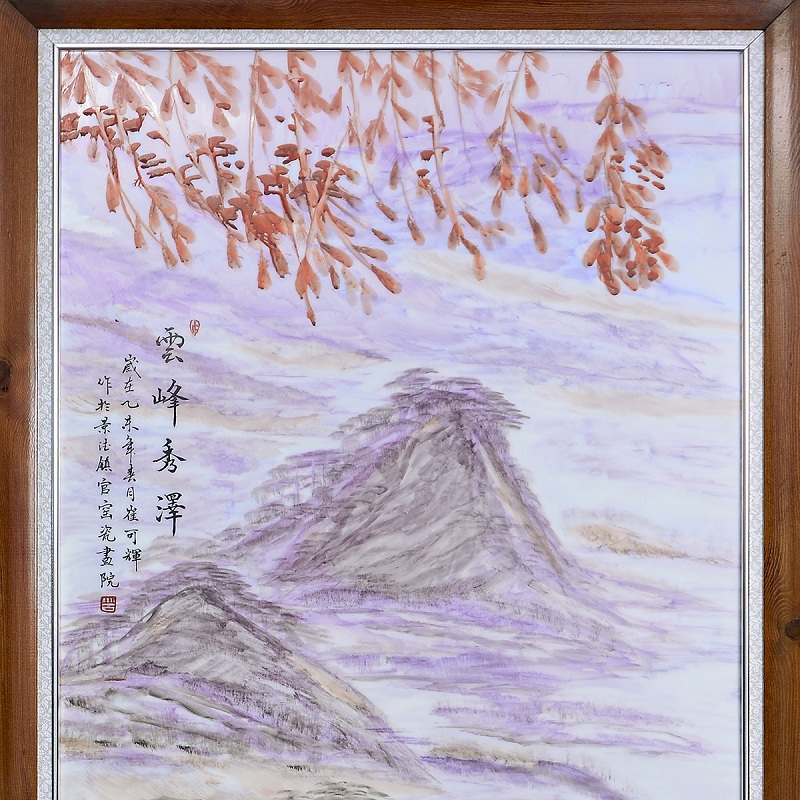 雲峰秀澤
歲在乙未年春月崔可輝
作於景德鎮官窑瓷畫院